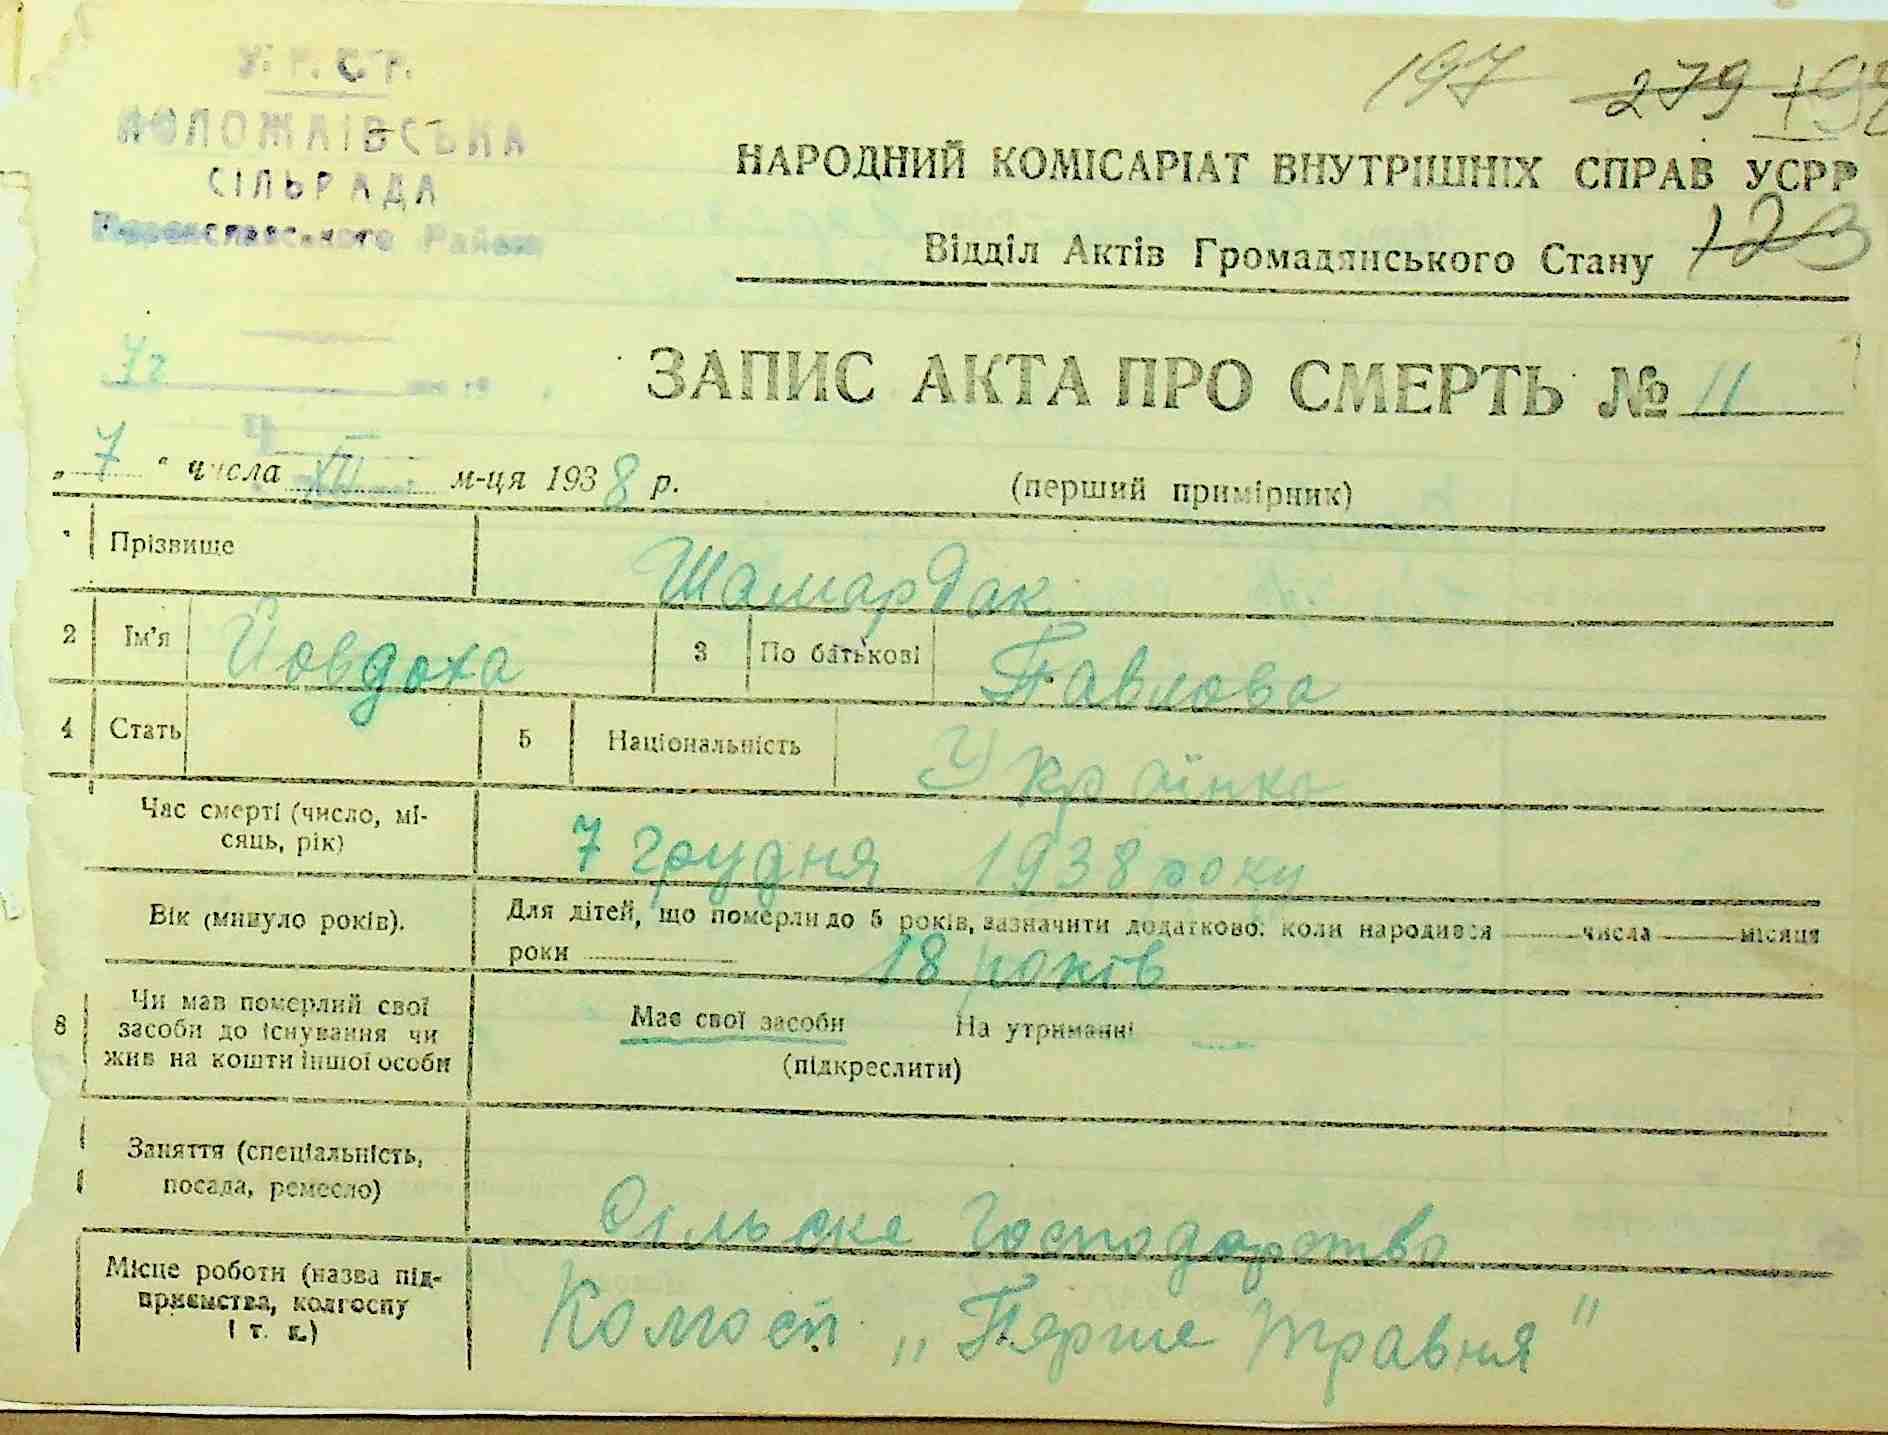 У. Р. С. Р.
197 279
СІЛЬРАДА
Переяславського Району
НАРОДНИЙ КОМІСАРІАТ ВНУТРІШНІХ СПРАВ УСРР
Відділ Актів Громадянського Стану 123
ЗАПИС АКТА ПРО СМЕРТЬ № 11
„7“ числа XII м-ця 1938 р.
(перший примірник)
Прізвище Шамардак
2 Ім'я Йовдоха 3 По батькові Павлова
4 Стать 5 Національність Українка
Час смерті (число, мі-
сяць, рік)
7 грудня 1938 року
Вік (минуло років).
Для дітей, що померли до 5 років, зазначити додатково: коли народився числа місяця
роки 18 років
8 Чи мав померлий свої
засоби до існування чи
жив на кошти іншої особи
Має свої засоби На утриманні
(підкреслити)
Заняття (спеціальність,
посада, ремесло)
Сільске господарство
Місце роботи (назва під-
приємства, колгоспу
і т. п.)
„Перше травня"